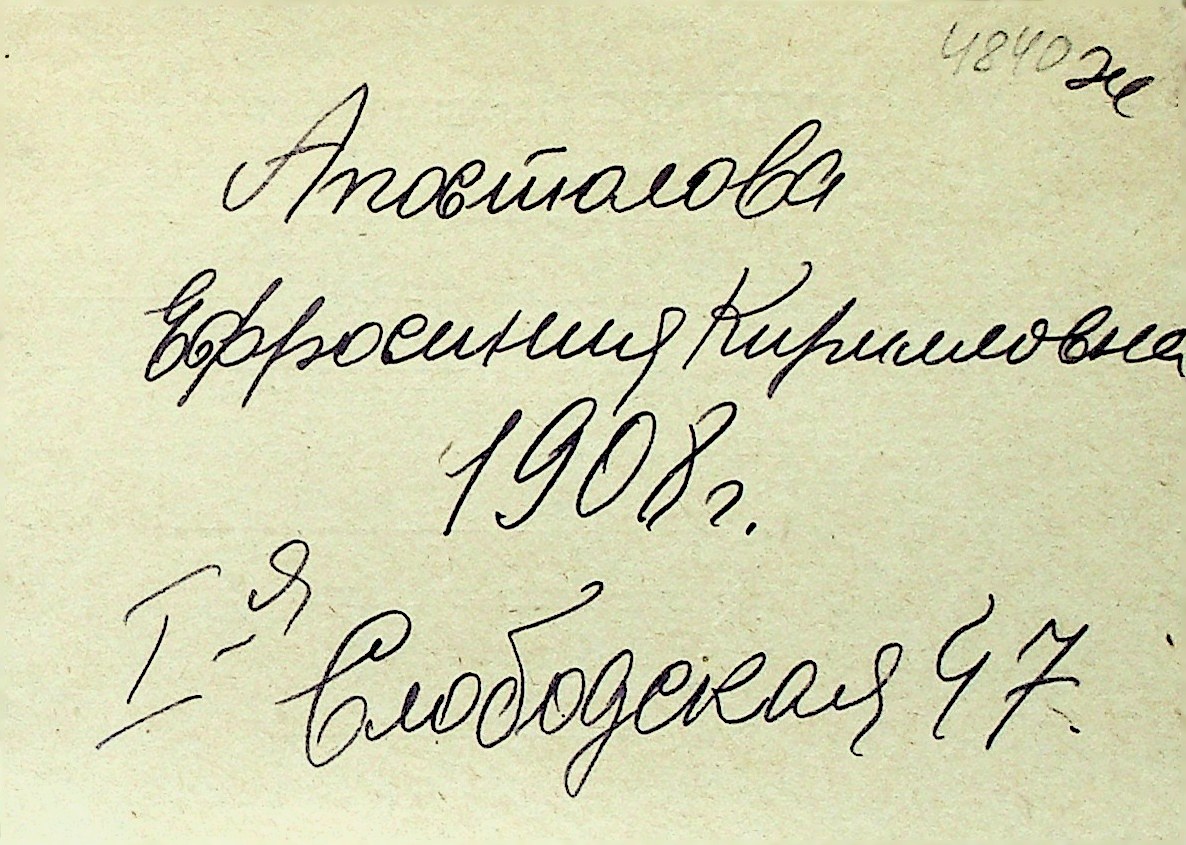 4840 ж
Апосталова
Ефросиния Кирилловна
1908 г.
I-я Слободская 47.